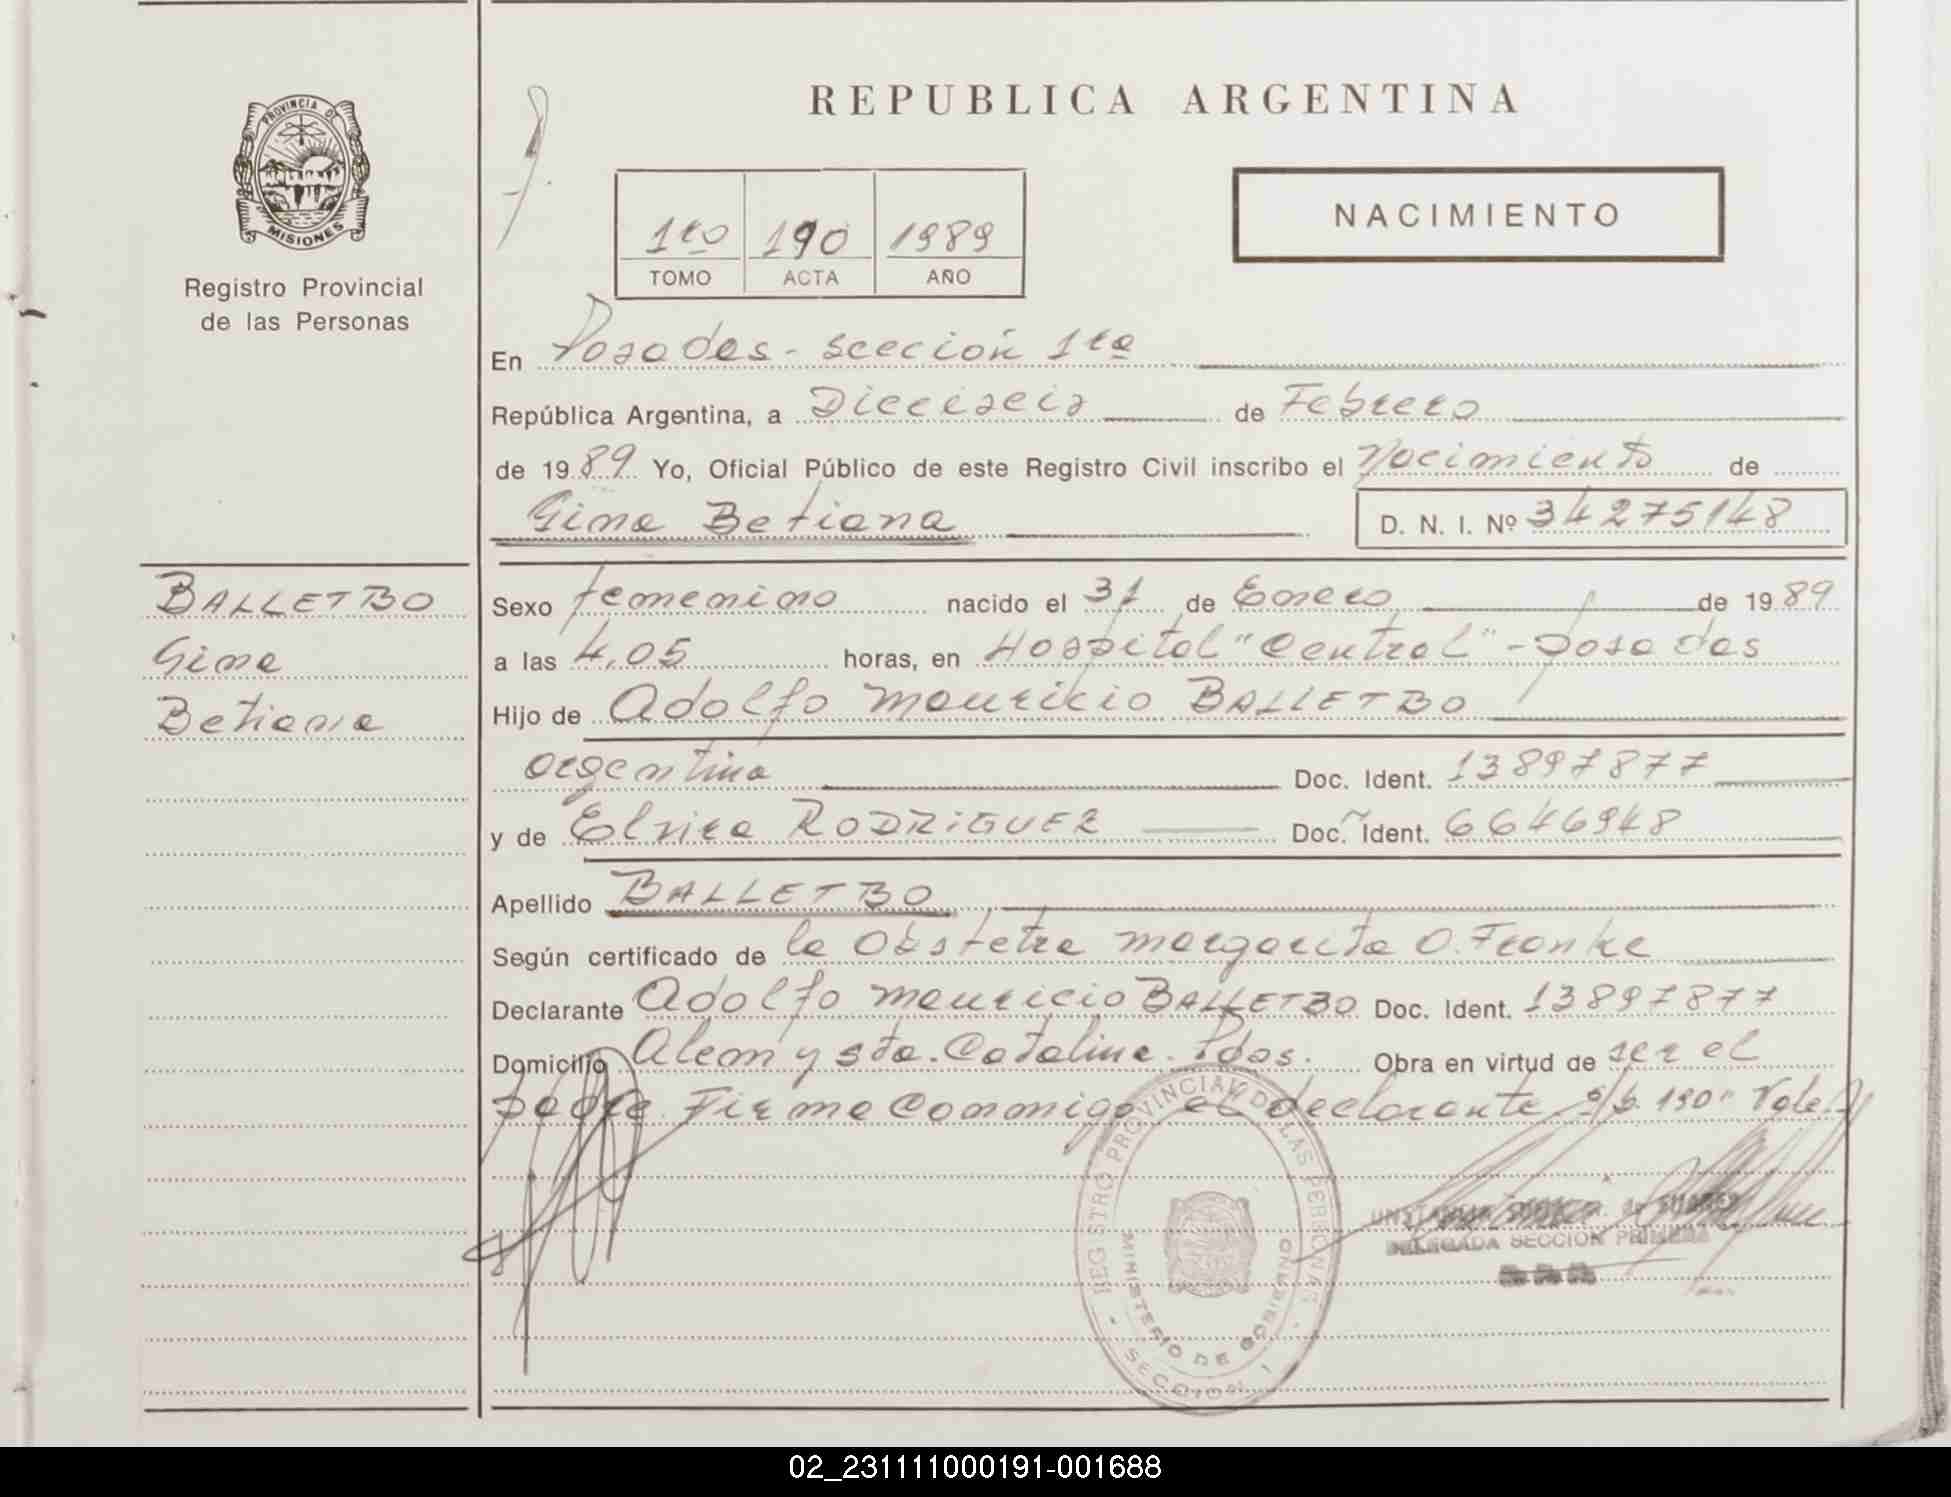 REPUBLICA ARGENTINA
PROVINCIA DE
MISIONES
Registro Provincial
de las Personas
NACIMIENTO
1ro 190 1989
TOMO ACTA AÑO
En Posadas - sección 1ra
República Argentina, a Dieciseis de Febrero
de 1989 Yo, Oficial Público de este Registro Civil inscribo el Nacimiento de
Gina Betiana D. N. I. Nº 34275148
BALLETBO
Gina
Betiana
Sexo femenino nacido el 31 de Enero de 1989
a las 4,05 horas, en Hospital "Central" - Posadas
Hijo de Adolfo Mauricio BALLETBO
argentino Doc. Ident. 13897877
y de Elvira RODRIGUEZ Doc. Ident. 6646948
Apellido BALLETBO
Según certificado de la Obstetra Margarita O. Franke
Declarante Adolfo Mauricio BALLETBO Doc. Ident. 13897877
Domicilio Alem y sta. Catalina. Pdas. Obra en virtud de ser el
padre. Firma conmigo el declarante. s/b. 190" Vale.
REGISTRO PROVINCIAL DE LAS PERSONAS
MINISTERIO DE GOBIERNO
- SECCION 1 -
DELEGADA SECCION PRIMERA
02_231111000191-001688